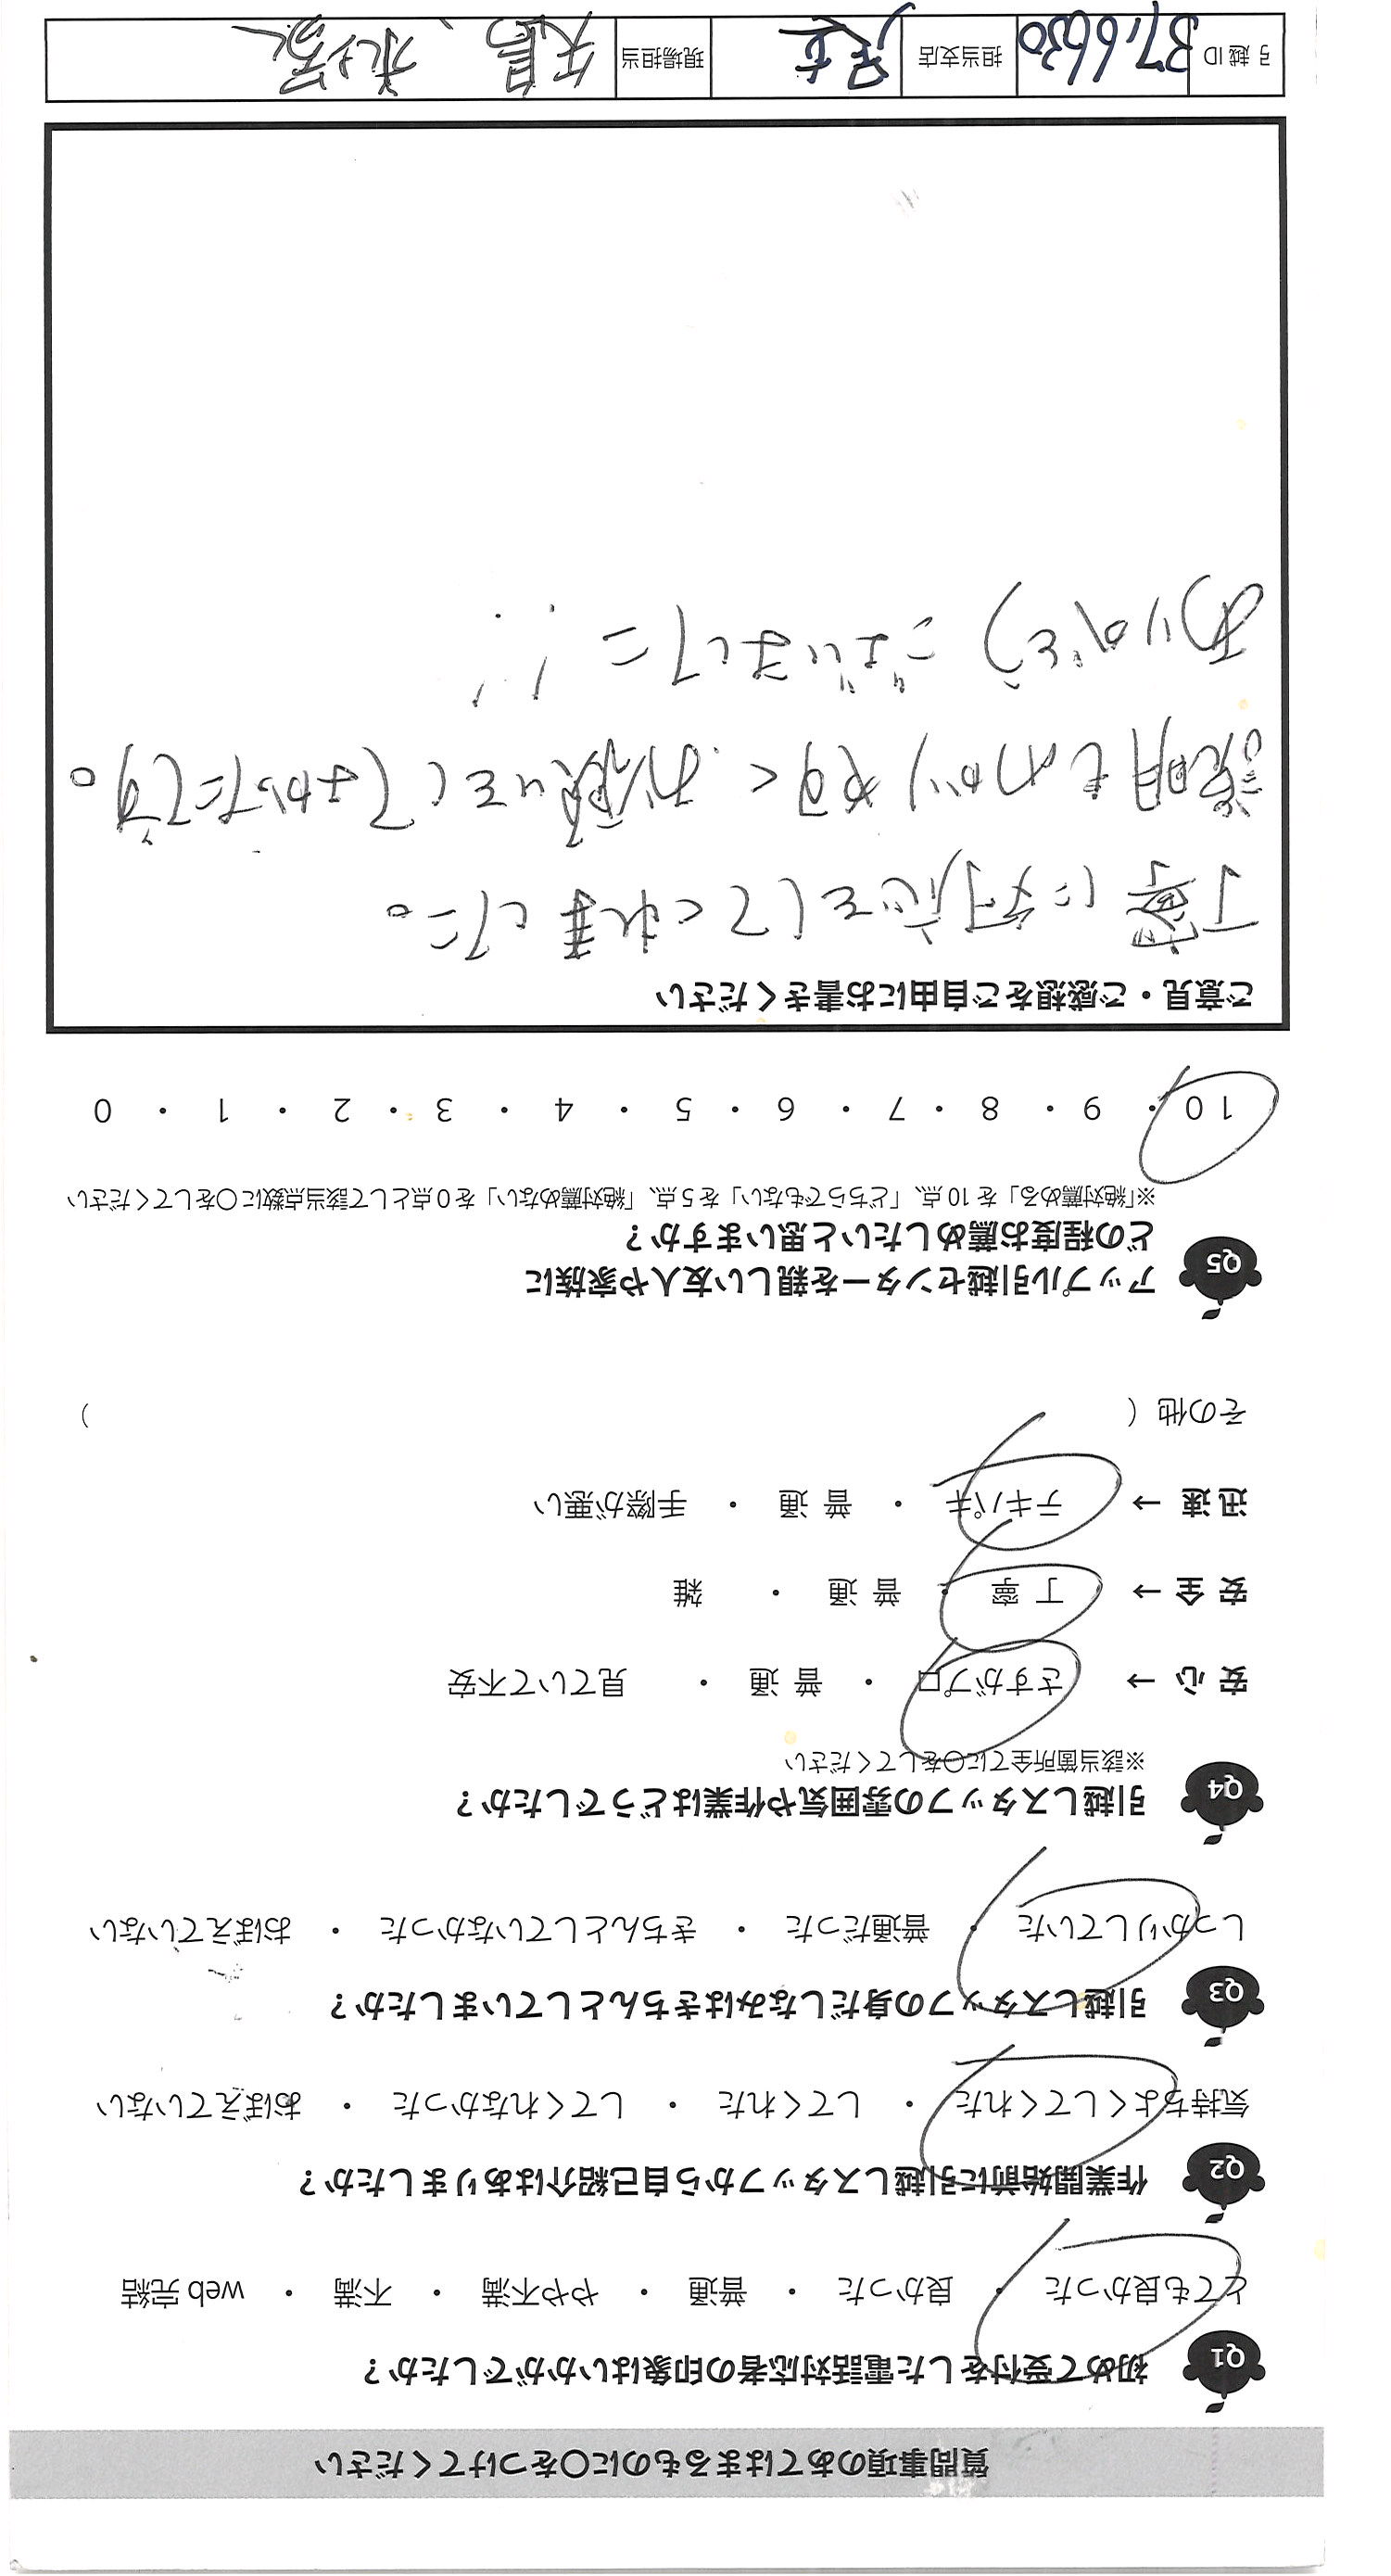 質問事項のあてはまるものに〇をつけてください
Q1 初めて受付をした電話対応者の印象はいかがでしたか？
とても良かった ・ 良かった ・ 普通 ・ やや不満 ・ 不満 ・ web 完結
Q2 作業開始前に引越しスタッフから自己紹介はありましたか？
気持ちよくしてくれた ・ してくれた ・ してくれなかった ・ おぼえていない
Q3 引越しスタッフの身だしなみはきちんとしていましたか？
しっかりしていた ・ 普通だった ・ きちんとしていなかった ・ おぼえていない
Q4 引越しスタッフの雰囲気や作業はどうでしたか？
※該当箇所全てに〇をしてください
安 心 → さすがプロ ・ 普 通 ・ 見ていて不安
安 全 → 丁 寧 ・ 普 通 ・ 雑
迅 速 → テキパキ ・ 普 通 ・ 手際が悪い
その他 （ ）
Q5 アップル引越センターを親しい友人や家族に
どの程度お薦めしたいと思いますか？
※「絶対薦める」を 10 点、「どちらでもない」を 5 点、「絶対薦めない」を 0 点として該当点数に〇をしてください
10 ・ 9 ・ 8 ・ 7 ・ 6 ・ 5 ・ 4 ・ 3 ・ 2 ・ 1 ・ 0
ご意見・ご感想をご自由にお書きください
丁寧に対応をしてくれました。
説明もわかりやすく、お願いをしてよかったです。
ありがとうございました！！
引越 ID 担当支店 現場担当 矢島、